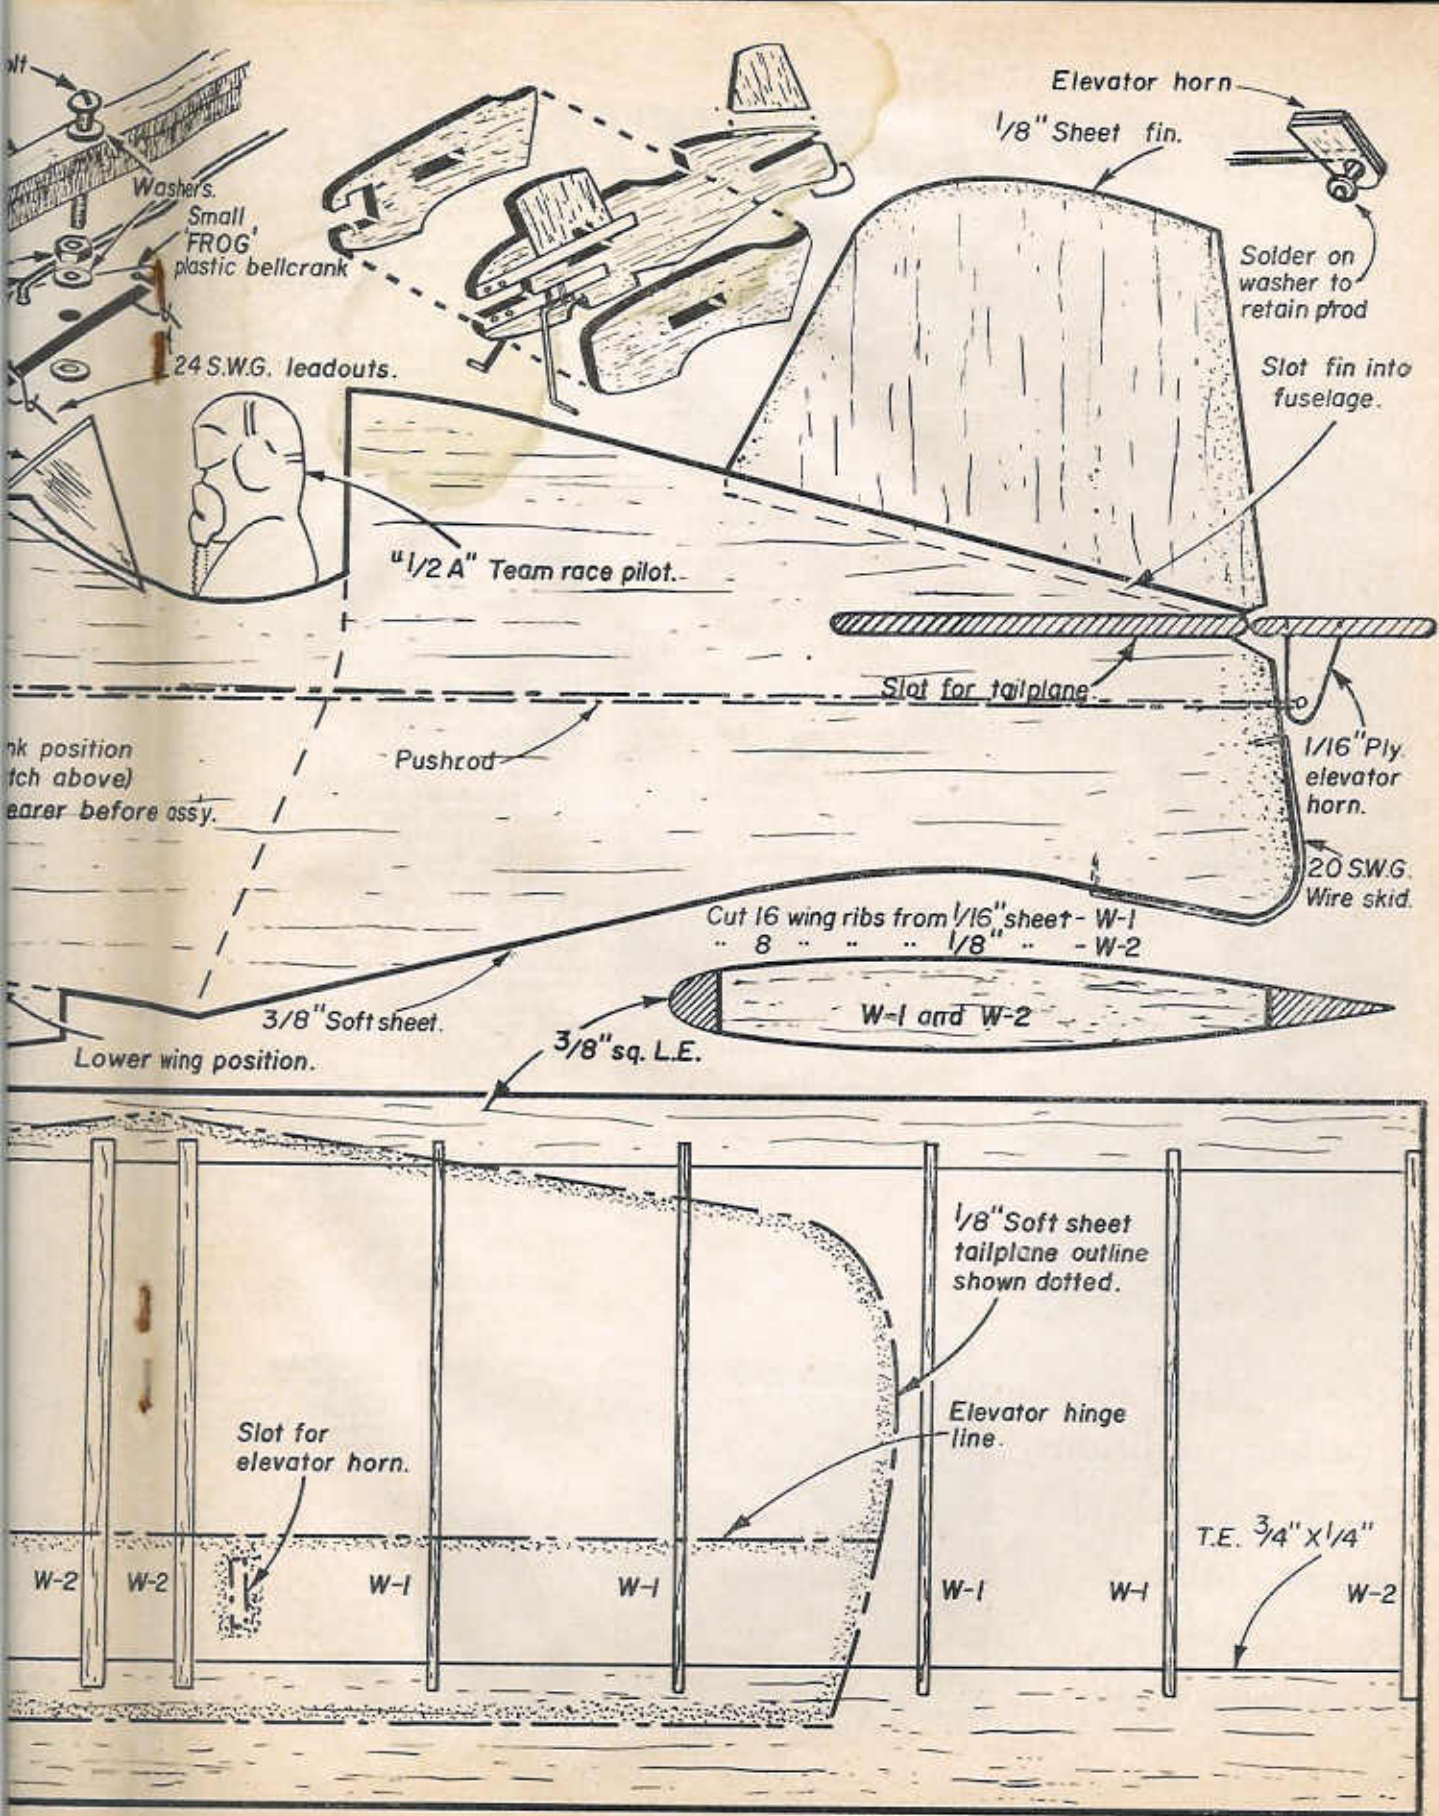 Washers.
Small
'FROG'
plastic bellcrank
24 S.W.G. leadouts.
Elevator horn
1/8" Sheet fin.
Solder on
washer to
retain p'rod
Slot fin into
fuselage.
"1/2 A" Team race pilot.
Slot for tailplane
Pushrod
position
above)
before ass'y.
1/16" Ply.
elevator
horn.
20 S.W.G.
Wire skid.
Cut 16 wing ribs from 1/16" sheet - W-1
" 8 " " " 1/8" " - W-2
W-1 and W-2
3/8" Soft sheet.
3/8" sq. L.E.
Lower wing position.
1/8" Soft sheet
tailplane outline
shown dotted.
Elevator hinge
line.
Slot for
elevator horn.
T.E. 3/4" X 1/4"
W-2 W-2 W-1 W-1 W-1 W-1 W-2